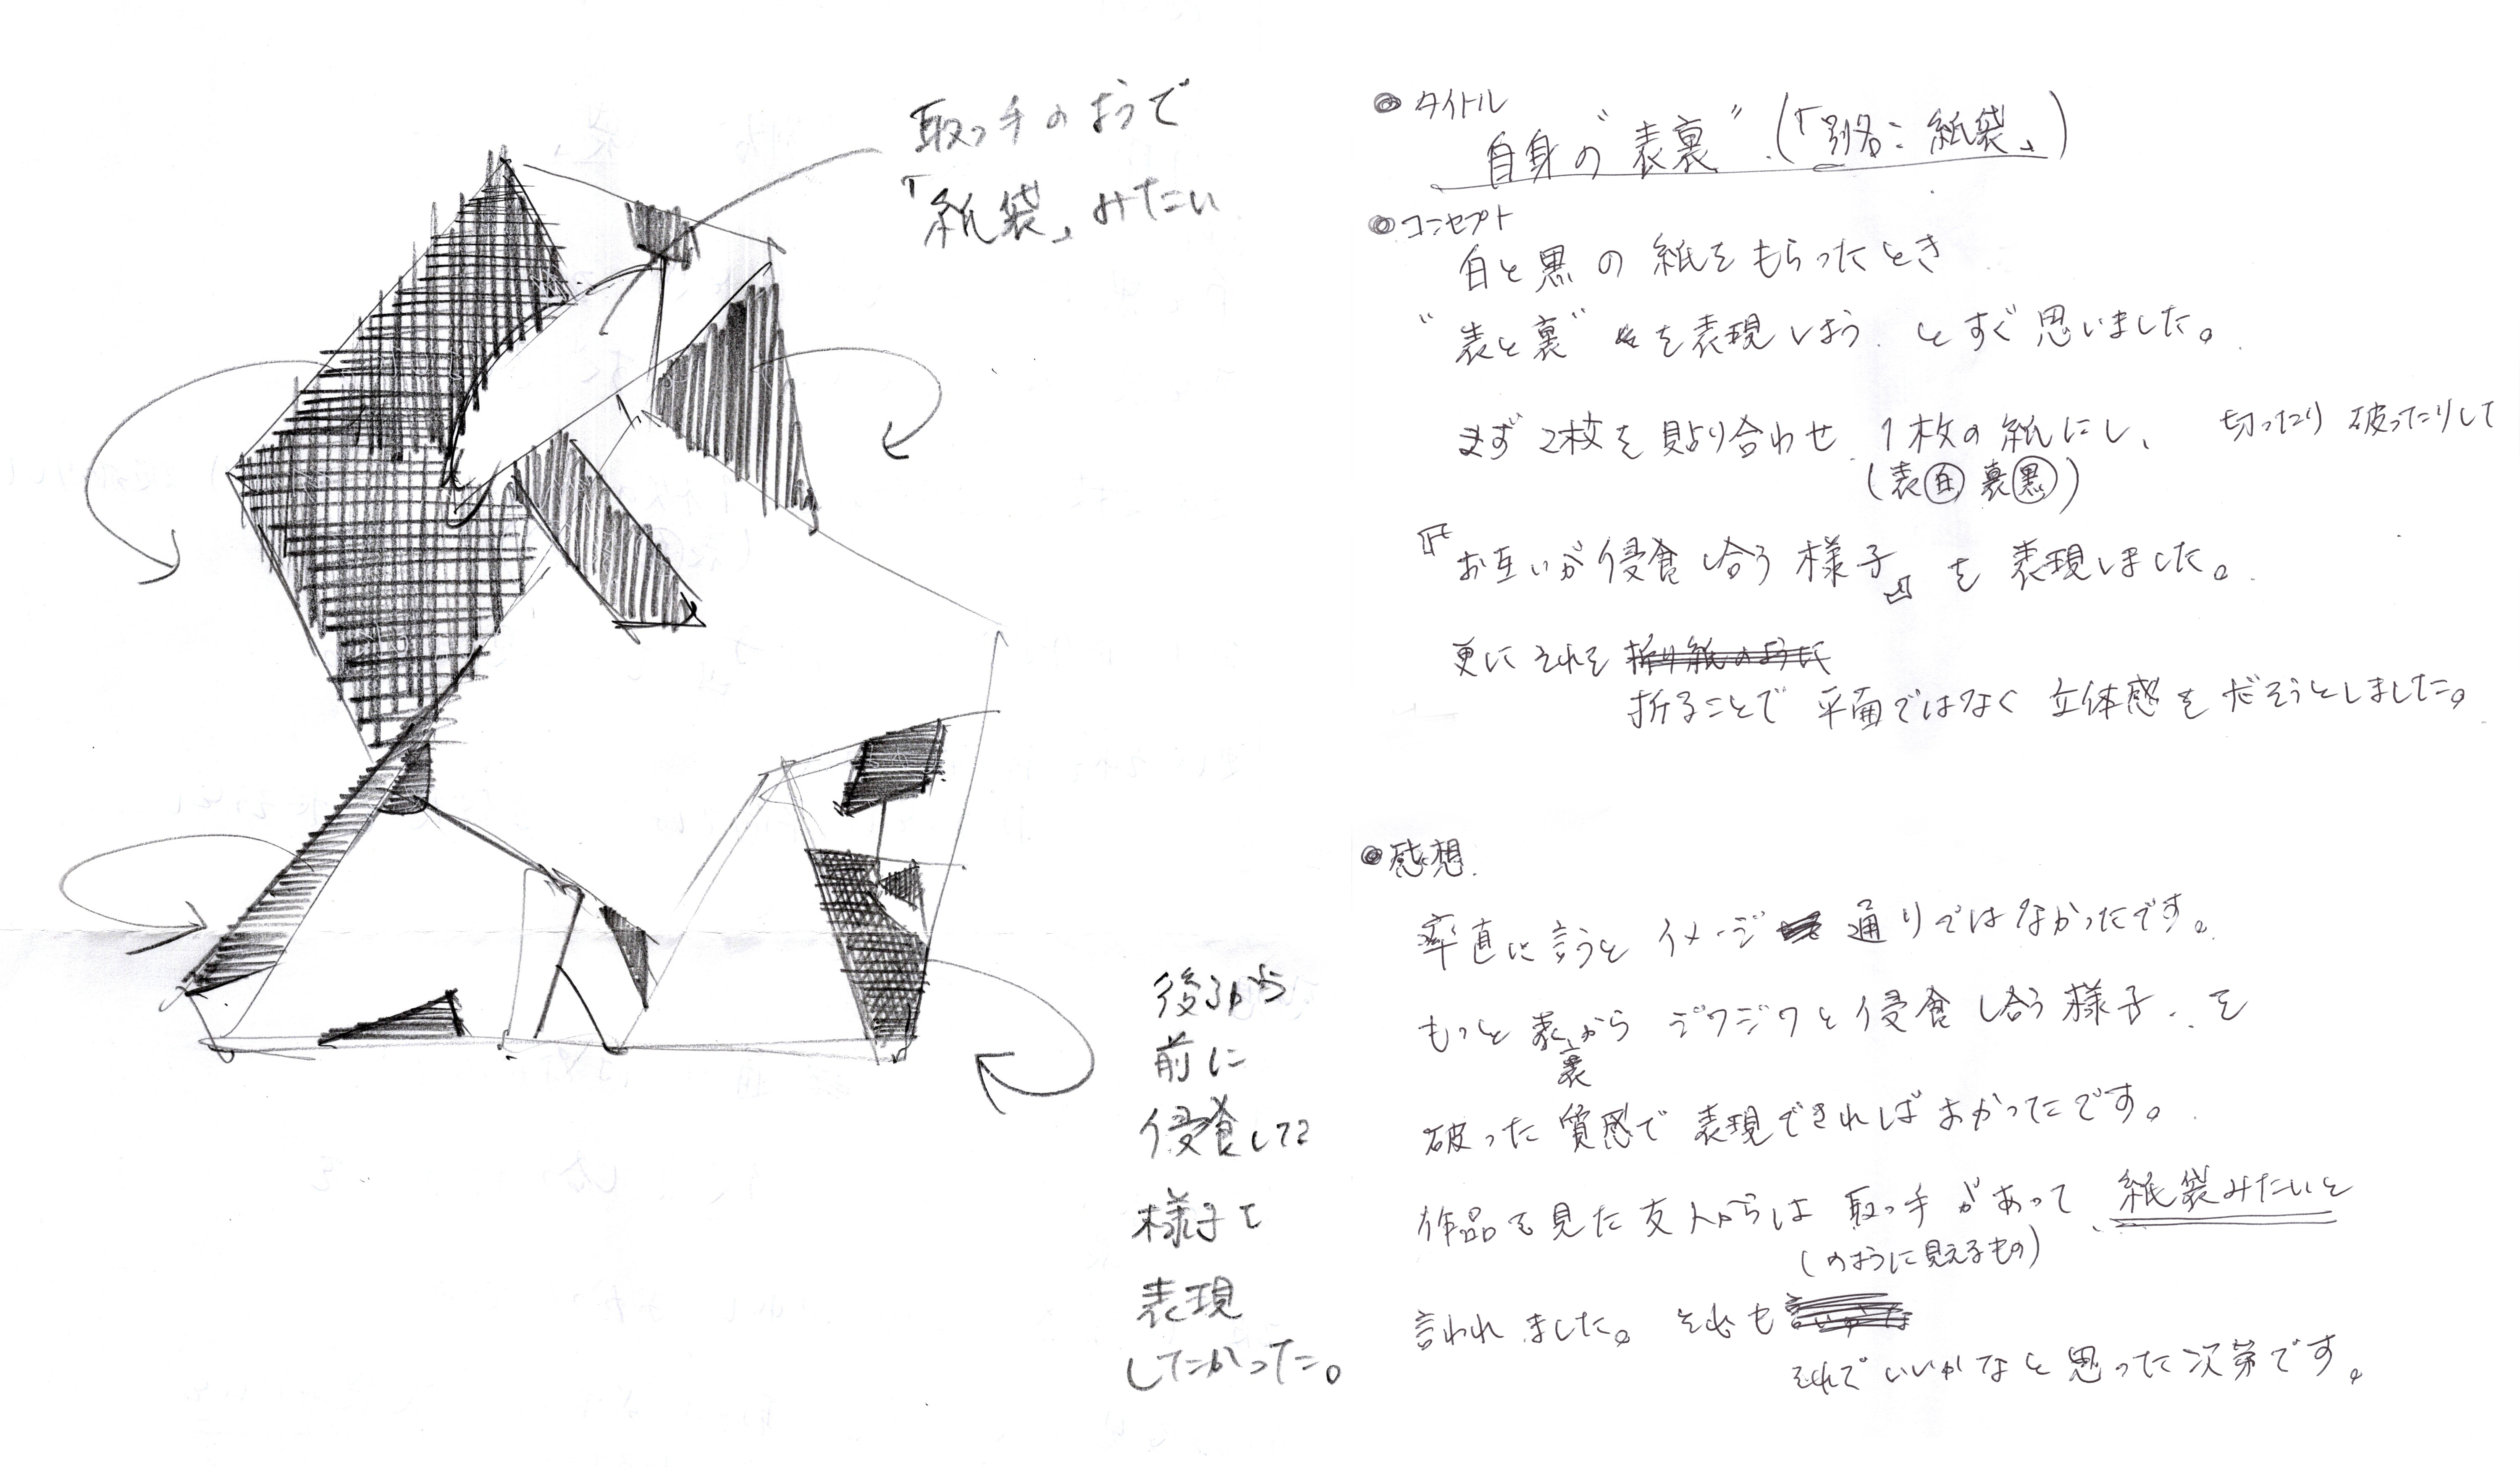 取っ手のようで
「紙袋」みたい
後ろから
前に
侵食してる
様子を
表現
したかった。
タイトル
自身の"表裏"(「別名：紙袋」)
コンセプト
白と黒の紙をもらったとき
"表と裏"を表現しよう とすぐ思いました。
まず2枚を貼り合わせ 1枚の紙にし、 切ったり 破ったりして
(表白 裏黒)
『お互いが侵食し合う様子』を表現しました。
更にそれを 折り紙のように
折ることで 平面ではなく 立体感をだそうとしました。
感想
率直に言うと イメージ 通りではなかったです。
もっと 表から ジワジワと侵食し合う様子..を
裏
破った質感で 表現できればよかったです。
作品を見た友人からは 取っ手があって 紙袋みたいと
(のように見えるもの)
言われました。 も
それでいいかなと思った次第です。